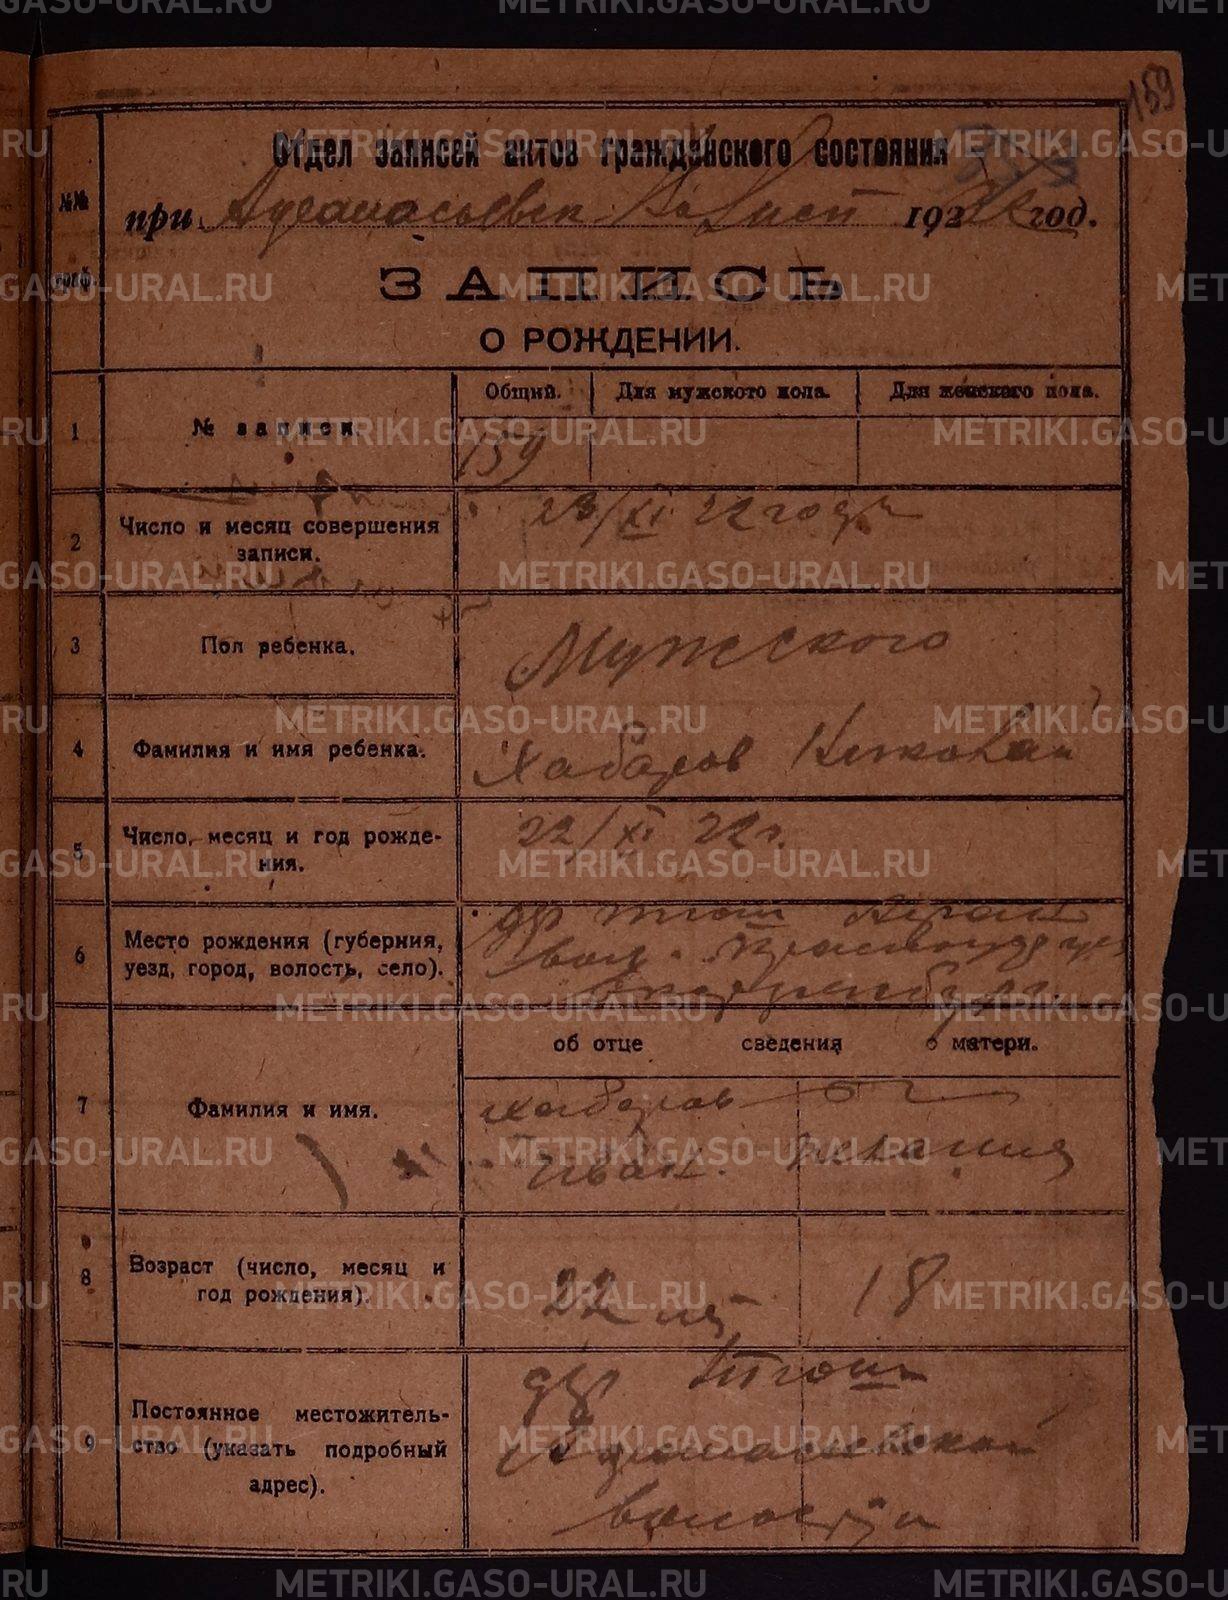 159
Отдел записей актов гражданского состояния
№№ граф.
при Афанасьевск. 1922 год.
ЗАПИСЬ
О РОЖДЕНИИ.
Общий. Для мужского пола. Для женского пола.
1 № записи. 159
2 Число и месяц совершения записи. 23/XI 22 года
3 Пол ребенка. Мужского
4 Фамилия и имя ребенка. Хабаров Николай
5 Число, месяц и год рождения. 22/XI 22 г.
6 Место рождения (губерния, уезд, город, волость, село). дер
вол. Красноуф уез
Екатеринбург.
об отце сведения о матери.
7 Фамилия и имя. Хабаров
Иван. Пелагия
8 Возраст (число, месяц и год рождения). 22 лет 18
9 Постоянное местожительство (указать подробный адрес). дер
Афанасьевской
волости
METRIKI.GASO-URAL.RU